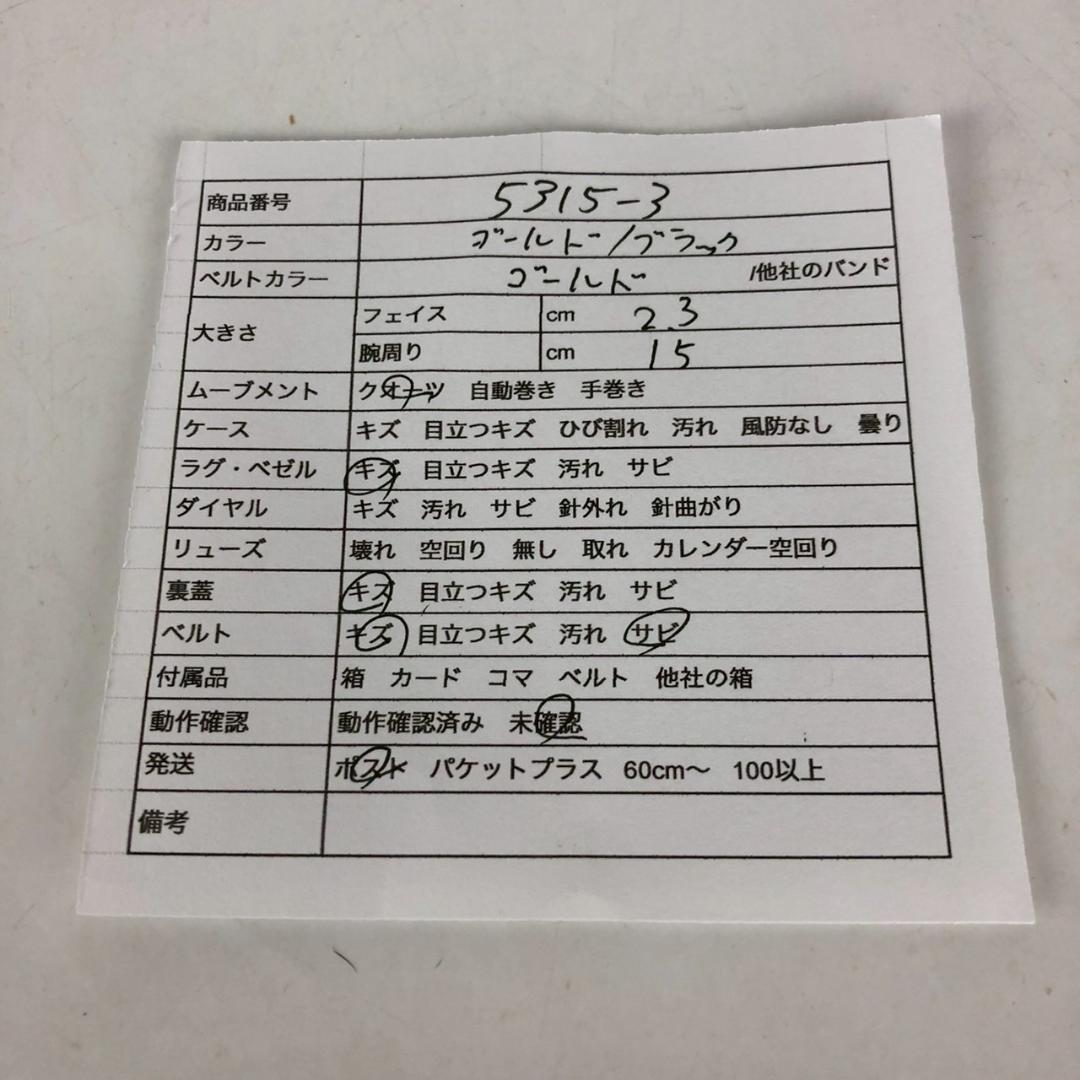 商品番号 5315-3
カラー ゴールド/ブラック
ベルトカラー ゴールド /他社のバンド
大きさ フェイス cm 2.3
腕周り cm 15
ムーブメント クオーツ 自動巻き 手巻き
ケース キズ 目立つキズ ひび割れ 汚れ 風防なし 曇り
ラグ・ベゼル キズ 目立つキズ 汚れ サビ
ダイヤル キズ 汚れ サビ 針外れ 針曲がり
リューズ 壊れ 空回り 無し 取れ カレンダー空回り
裏蓋 キズ 目立つキズ 汚れ サビ
ベルト キズ 目立つキズ 汚れ サビ
付属品 箱 カード コマ ベルト 他社の箱
動作確認 動作確認済み 未確認
発送 ポスト パケットプラス 60cm〜 100以上
備考